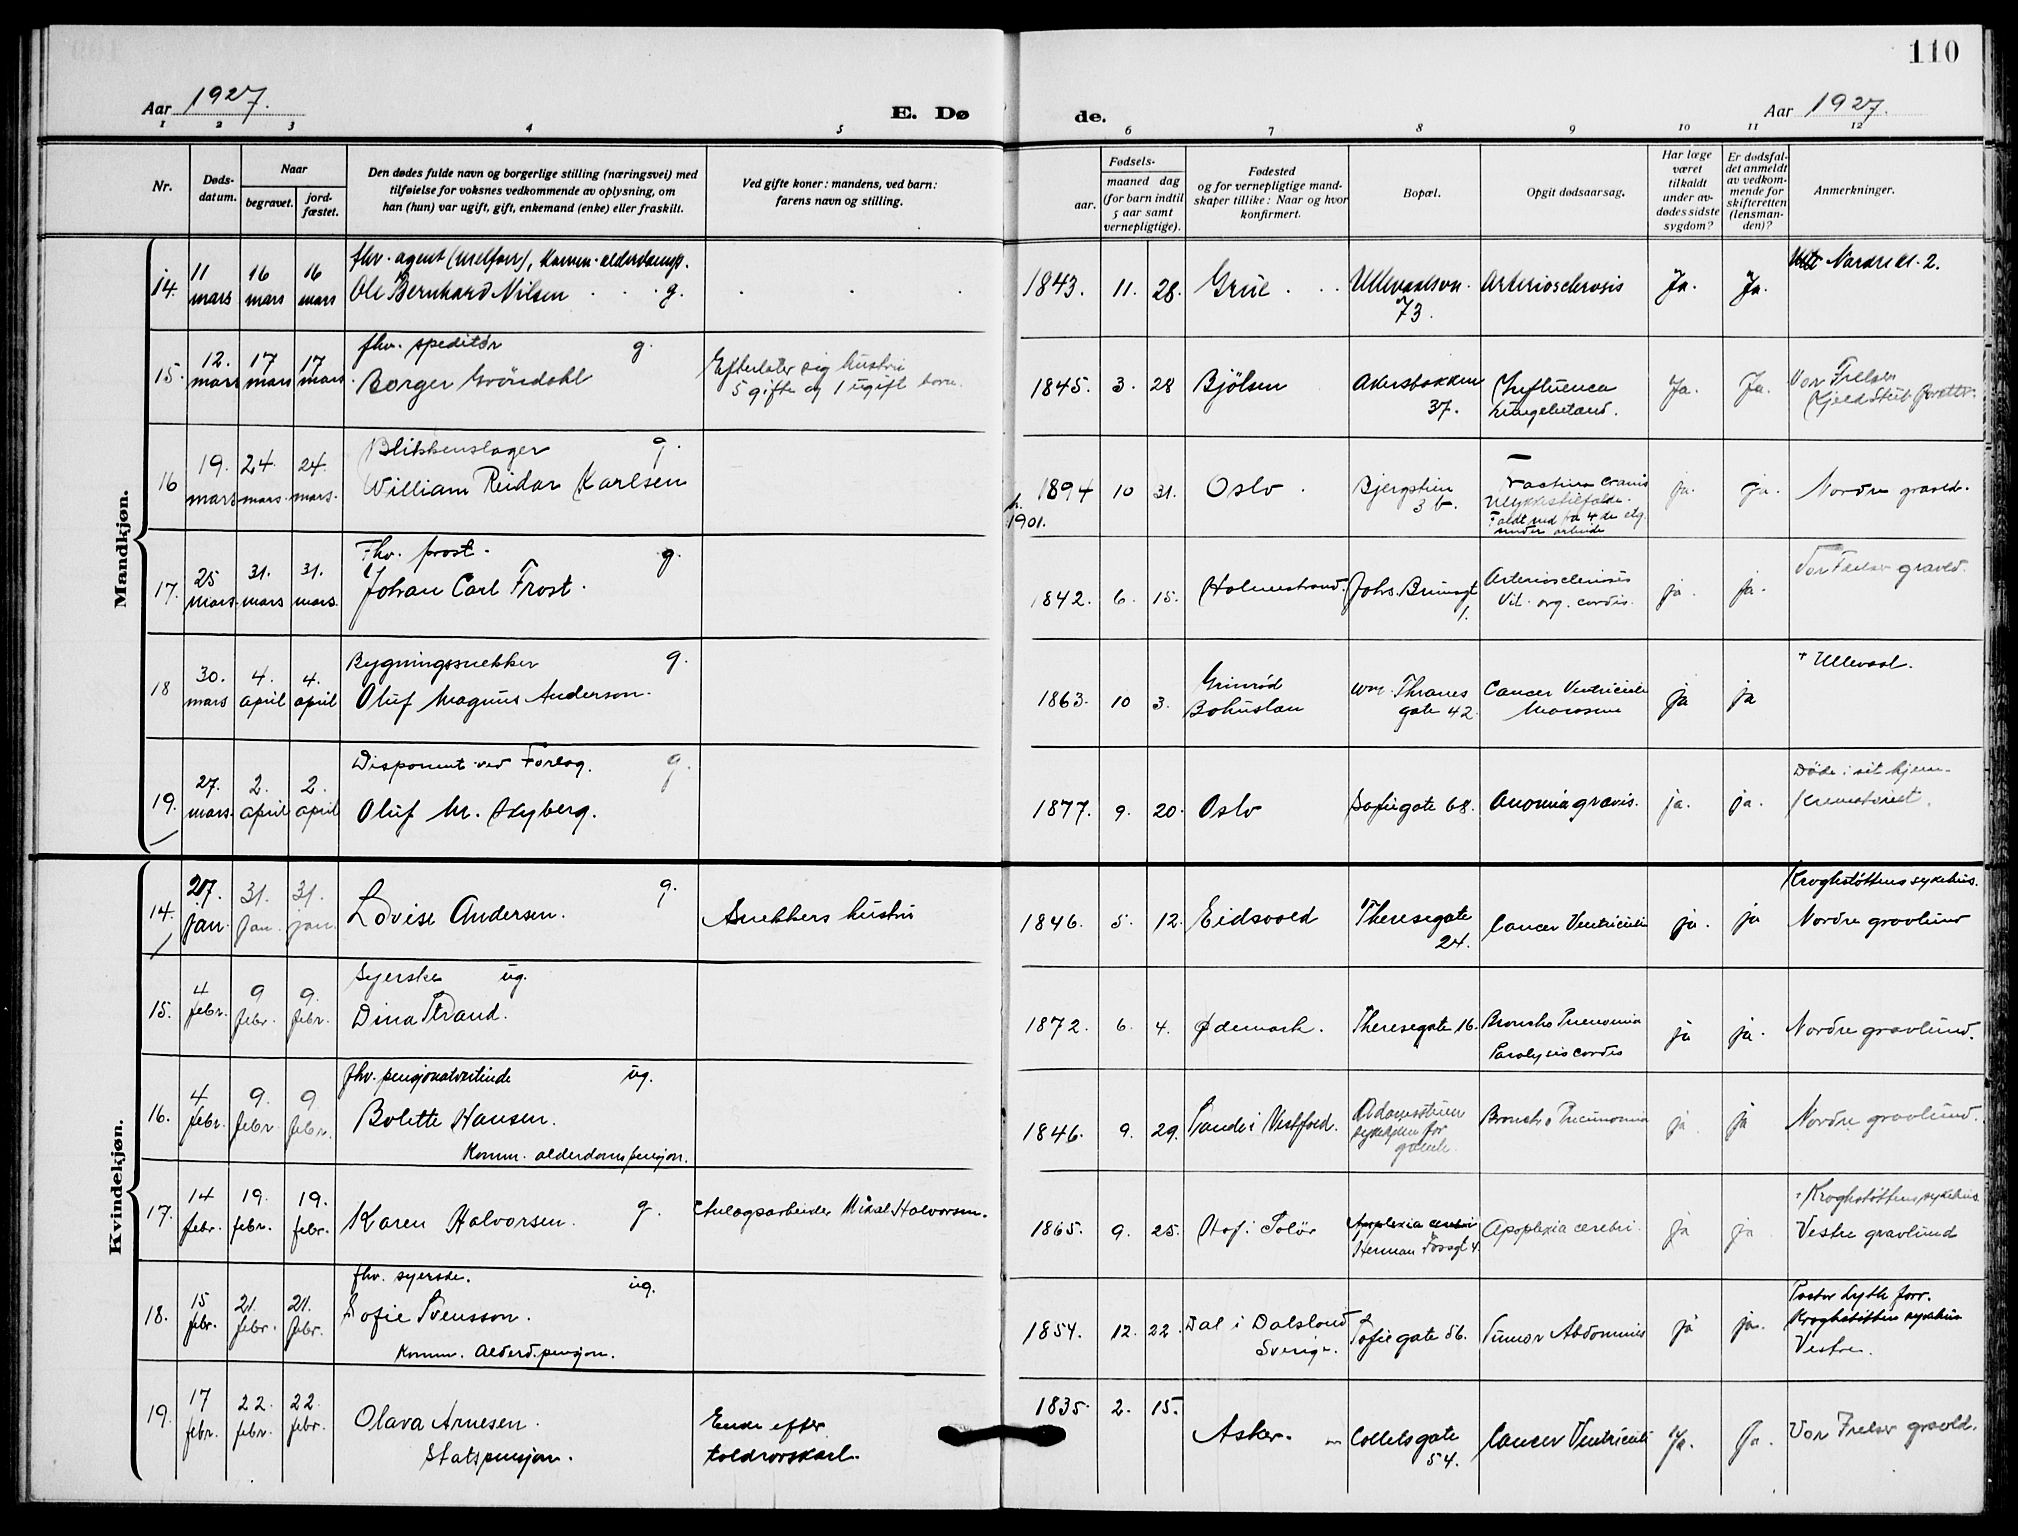 110
Aar 1927.
E. Dø
de.
Aar 1927.
1 2 3 4 5 6 7 8 9 10 11 12
Nr.
Døds-
datum.
Naar
begravet.
jord-
fæstet.
Den dødes fulde navn og borgerlige stilling (næringsvei) med
tilføielse for voksnes vedkommende av oplysning, om
han (hun) var ugift, gift, enkemand (enke) eller fraskilt.
Ved gifte koner: mandens, ved barn:
farens navn og stilling.
Fødsels-
aar.
maaned dag
(for barn indtil
5 aar samt
vernepligtige).
Fødested
og for vernepligtige mand-
skaper tillike: Naar og hvor
konfirmert.
Bopæl.
Opgit dødsaarsag.
Har læge
været
tilkaldt
under av-
dødes sidste
sygdom?
Er dødsfal-
det anmeldt
av vedkom-
mende for
skifteretten
(lensman-
den)?
Anmerkninger.
Mandkjøn.
14. 11 mars 16 mars 16 mars
fhv. agent
Ole Bernhard Nilsen g.
1843. 11. 28. Grue 73. Arteriosclerosis Ja. Ja.
15. 12. mars 17 mars 17 mars
fhv. speditör g.
Borger Gröndahl
Efterlater sig hustru
5 gifte og 1 ugift barn.
1845. 3. 28 Bjölsen Akersbakken 37. Influenca Ja. Ja. Vor Frelser
16 19. mars 24. mars. 24. mars.
Blikkenslager g.
William Reidar Karlsen
1894 10 31. Oslo Bjergstien 3 b.
1901.
Ulykkestilfælde.
Faldt ned fra 4de etg.
under arbeide
ja. ja. Nordre graved.
17. 25 mars. 31. mars 31. mars.
Fhv. prost. g.
Johan Carl Frost.
1842. 6. 15. Holmestrand. Johs. Brunsgt 1.
Arteriosclerosis
Vit. org. cordis.
ja. ja. Vor Frelser graved.
18 30. mars 4. april 4. april
Bygningssnekker g.
Oluf Magnus Anderson.
1863. 10 3.
Grimröd
Bohuslan
Thranes
gate 42.
Cancer Ventriculi
ja ja + Ullevaal.
19. 27. mars. 2. april 2. april
Disponent ved Forlag. g.
Oluf M. Hyberg.
1877. 9. 20. Oslo Sofiegate 68. Anomia gravis. ja. ja.
Döde i sit hjem.
Krematoriet.
Kvindekjøn.
14. 27. jan. 31. jan. 31. jan.
Lovise Andersen. g.
Snekkers hustru
1846. 5. 12. Eidsvold Theresegate 24. Cancer Ventriculi ja. ja
Kroghstøttens sykehus.
Nordre gravlund
15. 4 febr. 9 febr. 9. febr.
Syerske ug.
Dina Strand.
1872. 6. 4. Ødemark. Theresegate 16.
Broncho Pneumonia
Paralysis cordis
ja ja. Nordre gravlund.
16. 4 febr. 9. febr. 9 febr.
fhv. pensjonatvertinde ug.
Bolette Hansen.
Komm. alderdomspensjon.
1846. 9. 29. Sande i Vestfold.
Adamstuen
sykehjem for
gamle.
Broncho Pneumonia ja ja Nordre gravlund.
17. 14 febr. 19. febr. 19. febr.
Karen Halvorsen. g.
Anlagsarbeider Mikal Halvorsen.
1865. 9. 25. Hof i Solör
Apoplexia cerebri
Herman Fossgt 4.
Apoplexia cerebri. ja ja
+ Kroghstøttens sykehus.
Vestre gravlund
18. 15 febr. 21. febr. 21. febr.
fhv. syerske. ug.
Sofie Svensson.
Komm. Alderd.pensjon.
1854. 12. 22.
Dal i Dalsland
Sverige.
Sofiegate 56. Tumor Abdominis ja ja.
Pastor Lytle forr.
Kroghstøttens sykehus
Vestre.
19. 17 febr. 22. febr. 22. febr.
Olava Arnesen.
Statspensjon.
Enke efter
toldrorskarl.
1835. 2. 15. Asker. Colletsgate 54. Cancer Ventriculi Ja. Ja. Vor Frelser gravld.